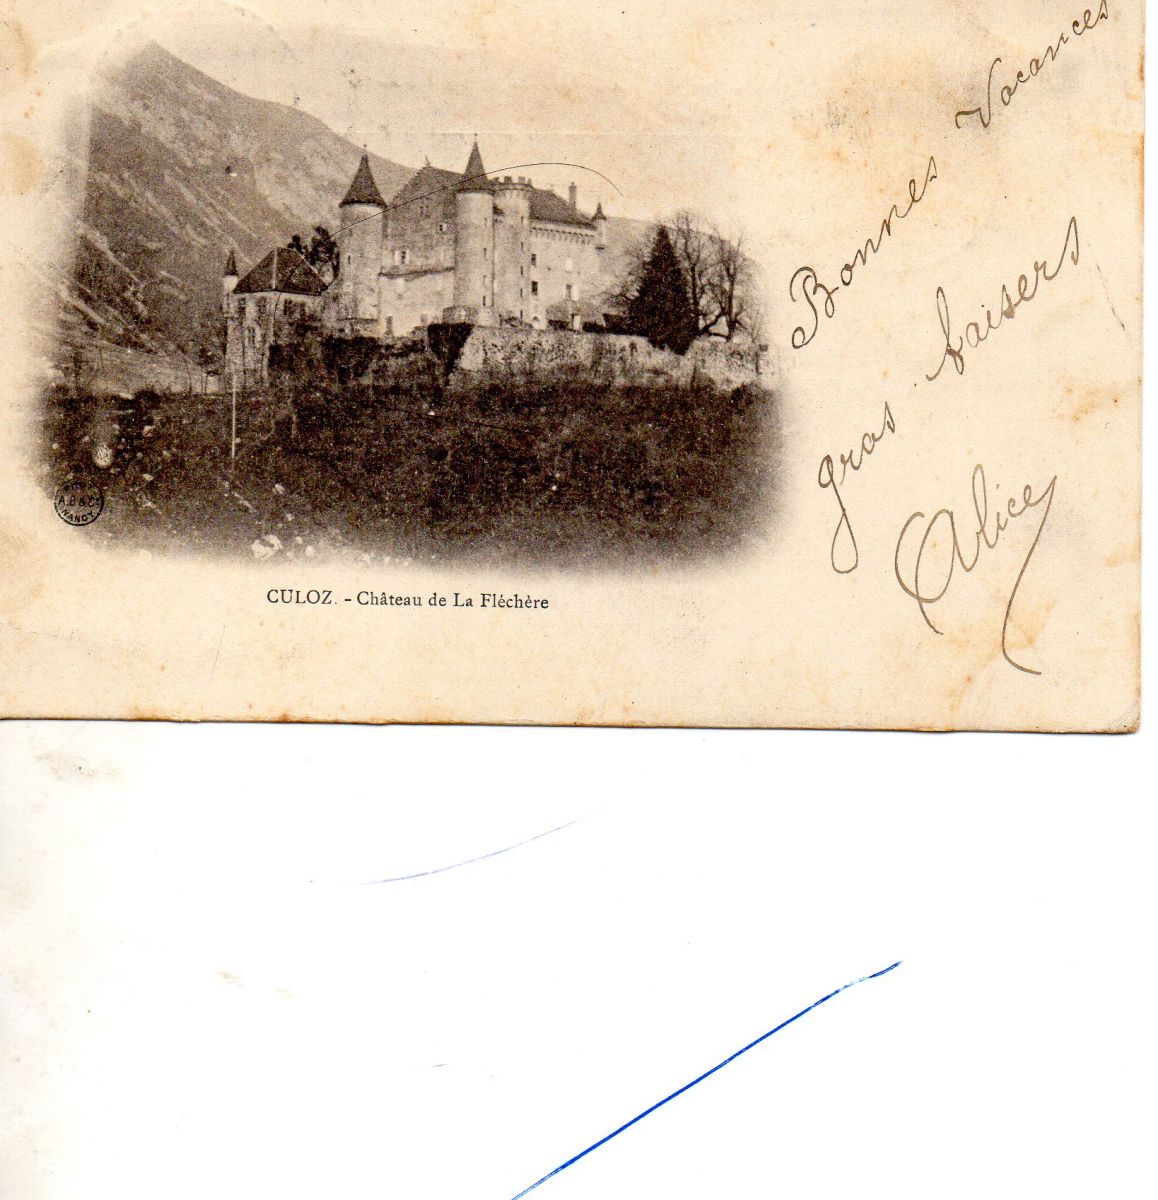 Bonnes Vacances
gros baisers
Alice
A.B & Cie
NANCY
CULOZ. - Château de La Fléchère